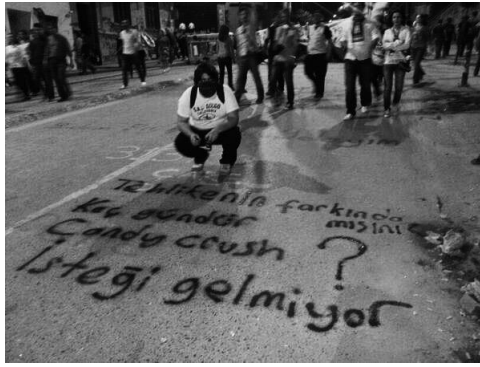 Tehlikenin farkında
mısınız
Kaç gündür
Candy crush ?
isteği gelmiyor